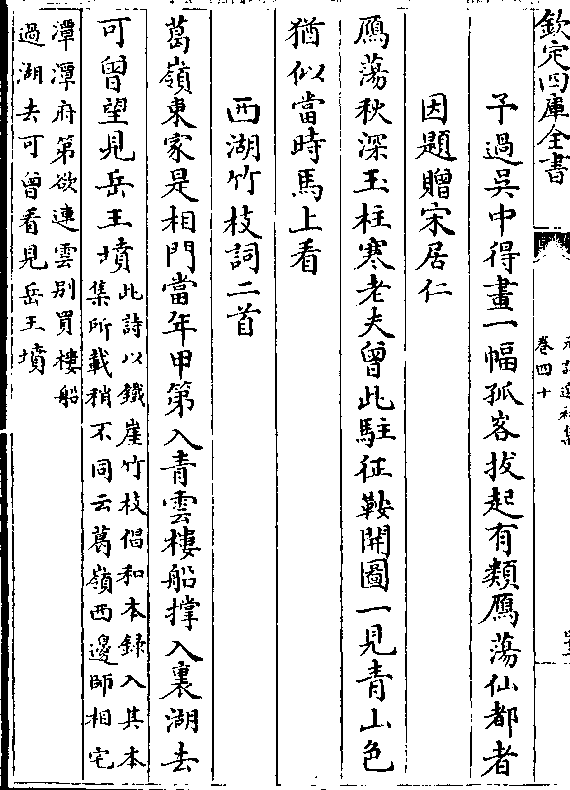 欽定四庫全書
卷四十
予過吳中得畫一幅孤客拔起有類鴈蕩仙都者
因題贈宋居仁
鴈蕩秋深玉柱寒老夫曾此駐征鞍開圖一見青山色
猶似當時馬上看
西湖竹枝詞二首
葛嶺東家是相門當年甲第入青雲樓船撑入裏湖去
可曾望見岳王墳
此詩以鐵崖竹枝倡和本録入其本
集所載稍不同云葛嶺西邊師相宅
潭潭府第欲連雲别買樓船
過湖去可曾看見岳王墳